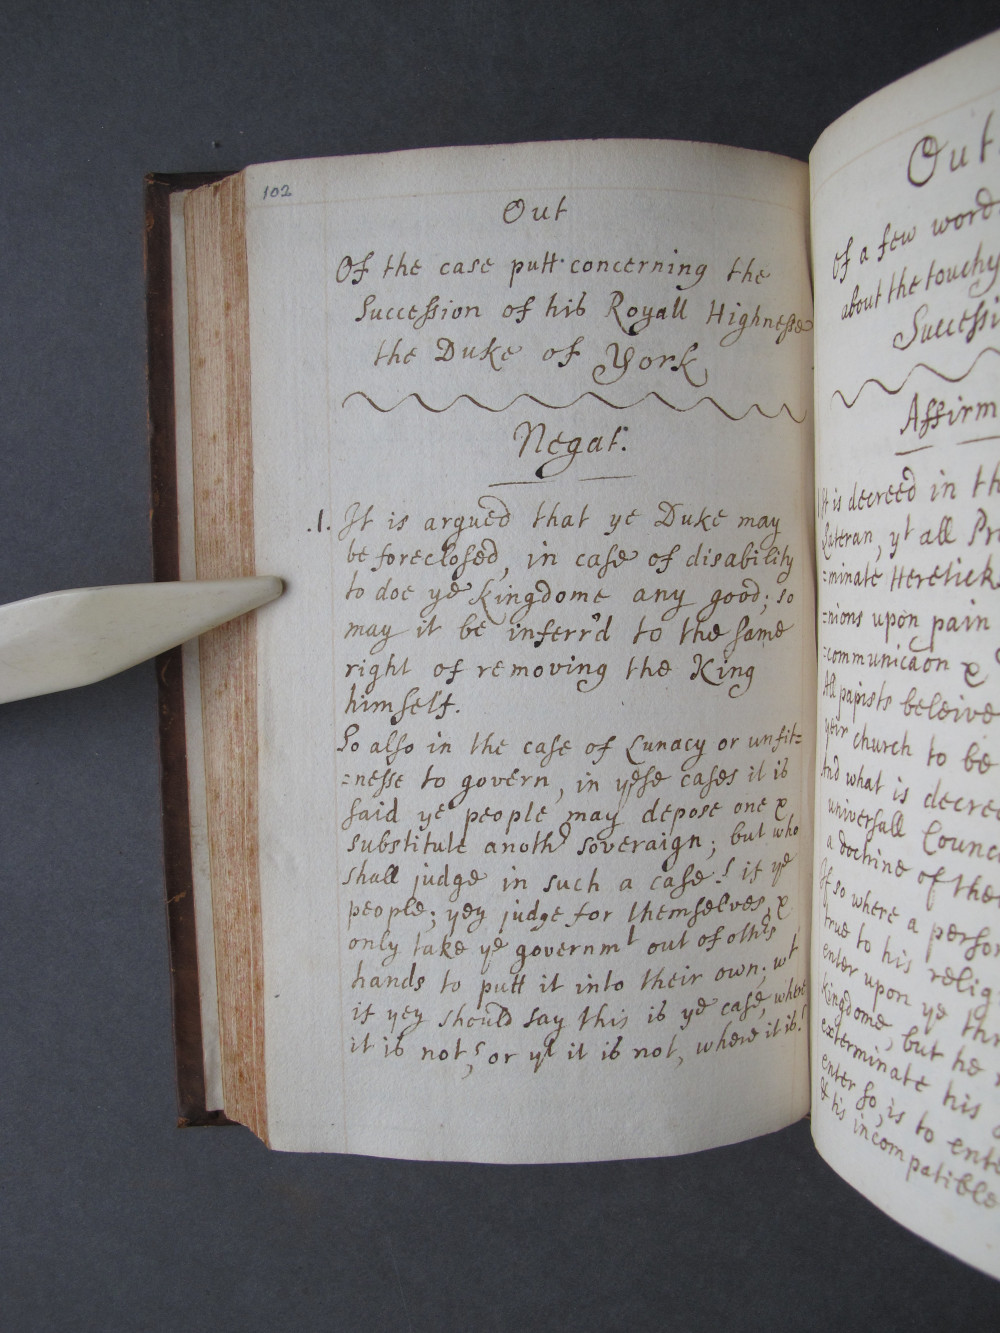 102
Out
Of the case putt concerning the
Succession of his Royall Highnesse
the Duke of York
Negat:
.1. It is argued that ye Duke may
be foreclosed, in case of disability
to doe ye Kingdome any good; so
may it be inferr'd to the same
right of removing the King
himself.
So also in the case of Lunacy or unfit=
=nesse to govern, in yese cases it is
said ye people may depose one &
substitute anothr soveraign; but who
shall judge in such a case? if ye
people; yey judge for themselves, &
only take ye governmt out of othrs
hands to putt it into their own; wt
if yey should say this is ye case, where
it is not; or yt it is not, where it is?
Out
Of a few word
about the touchy
Successi
Affirm
It is decreed in th
Lateran, yt all Pr
=minate Heretick
=nions upon pain
=communicaon &
All papists beleive
yeir church to be
And what is decre
universall Counc
a doctrine of the
If so where a perso
true to his relig
enter upon ye thr
Kingdome, but he
exterminate his
enter so, is to ente
& his incompatible